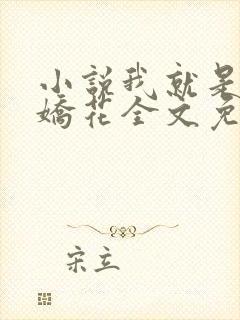 小說我就是
嬌花全文免
宋立